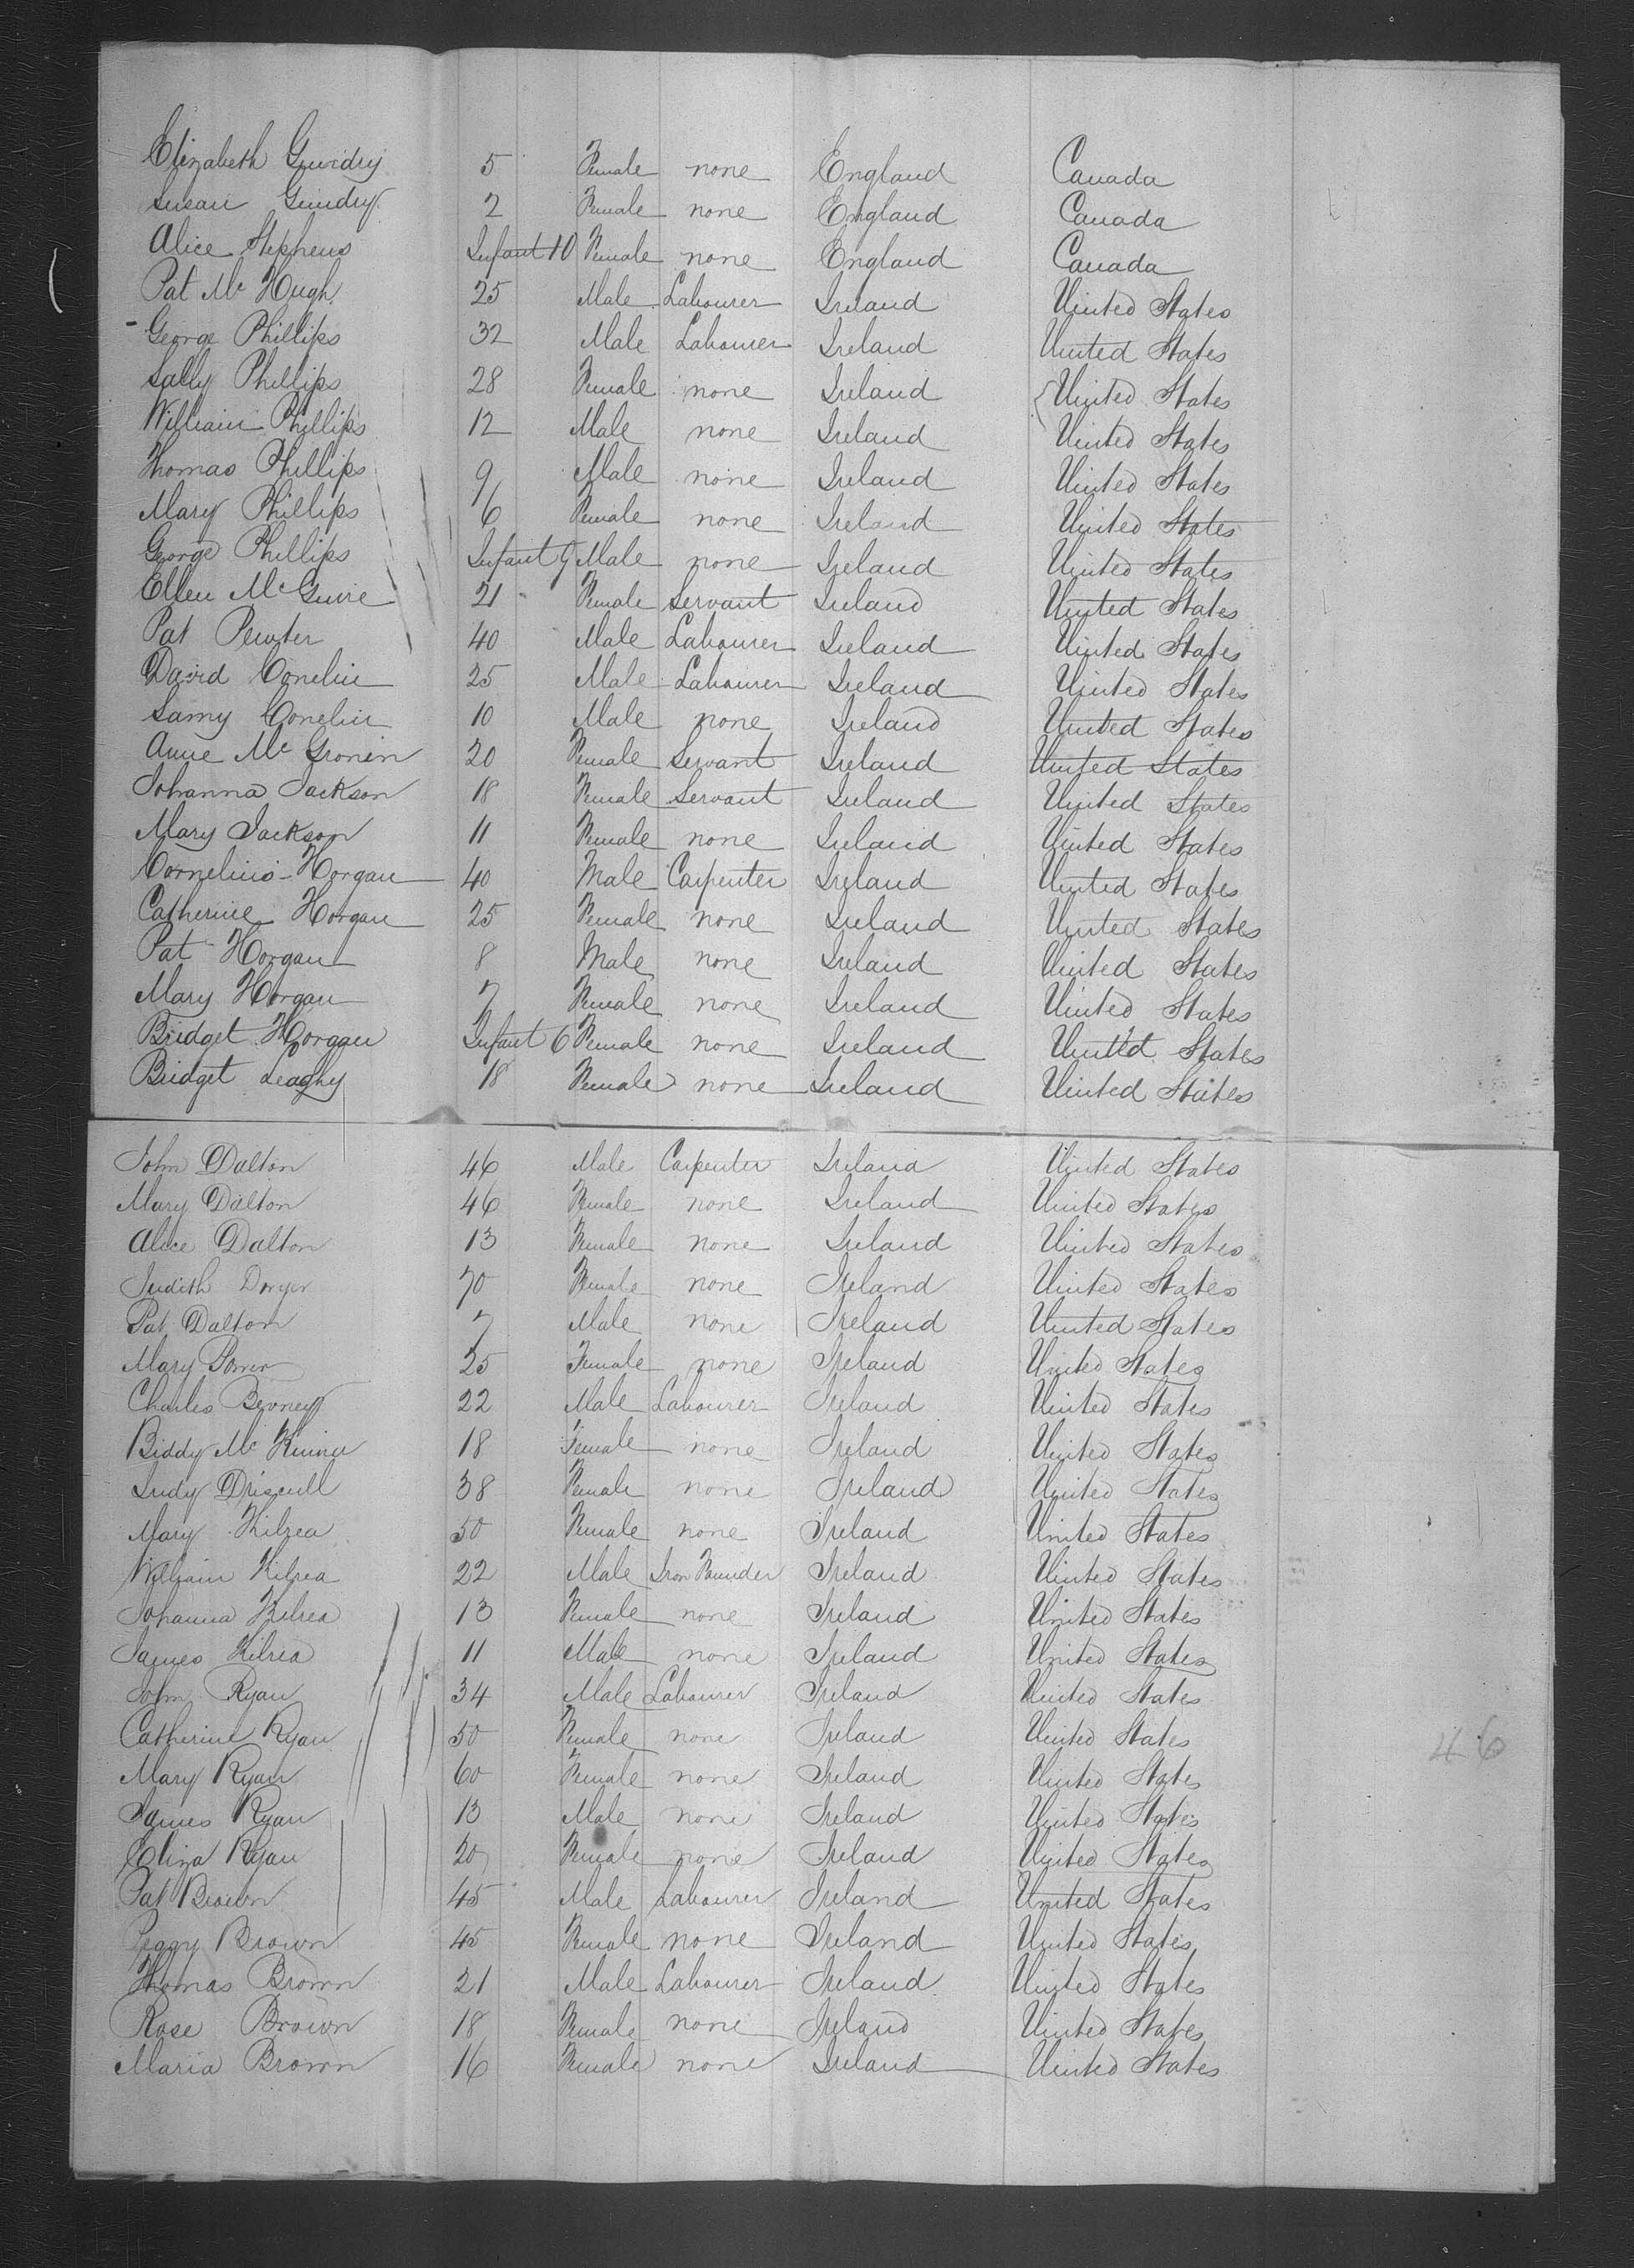 Elizabeth 5 Female none England Canada
Susan 2 Female none England Canada
Alice Stephens Infant 10 Female none England Canada
Pat Mc Hugh 25 Male Labourer Ireland United States
George Phillips 32 Male Labourer Ireland United States
Sally Phillips 28 Female none Ireland United States
William Phillips 12 Male none Ireland United States
Thomas Phillips 9 Male none Ireland United States
Mary Phillips 6 Female none Ireland United States
George Phillips Infant 9 Male none Ireland United States
Ellen Mc Guire 21 Female Servant Ireland United States
Pat 40 Male Labourer Ireland United States
David 25 Male Labourer Ireland United States
10 Male none Ireland United States
Anne Mc Gronin 20 Female Servant Ireland United States
Johanna Jackson 18 Female Servant Ireland United States
Mary Jackson 11 Female none Ireland United States
Cornelius Horgan 40 Male Carpenter Ireland United States
Catherine Horgan 25 Female none Ireland United States
Pat Horgan 8 Male none Ireland United States
Mary Horgan 7 Female none Ireland United States
Bridget Horgan Infant 6 Female none Ireland United States
Bridget Leaghy 18 Female none Ireland United States
John Dalton 46 Male Carpenter Ireland United States
Mary Dalton 46 Female none Ireland United States
Alice Dalton 13 Female none Ireland United States
Judith 70 Female none Ireland United States
Pat Dalton 7 Male none Ireland United States
Mary 25 Female none Ireland United States
Charles 22 Male Labourer Ireland United States
Biddy Mc 18 Female none Ireland United States
Judy Driscull 38 Female none Ireland United States
Mary Kilrea 50 Female none Ireland United States
William Kilrea 22 Male Iron Founder Ireland United States
Johanna Kilrea 13 Female none Ireland United States
James Kilrea 11 Male none Ireland United States
John Ryan 34 Male Labourer Ireland United States
Catherine Ryan 50 Female none Ireland United States
Mary Ryan 60 Female none Ireland United States
James Ryan 13 Male none Ireland United States
Eliza Ryan 20 Female none Ireland United States
Pat Brown 45 Male Labourer Ireland United States
Peggy Brown 45 Female none Ireland United States
Thomas Brown 21 Male Labourer Ireland United States
Rose Brown 18 Female none Ireland United States
Maria Brown 16 Female none Ireland United States
46